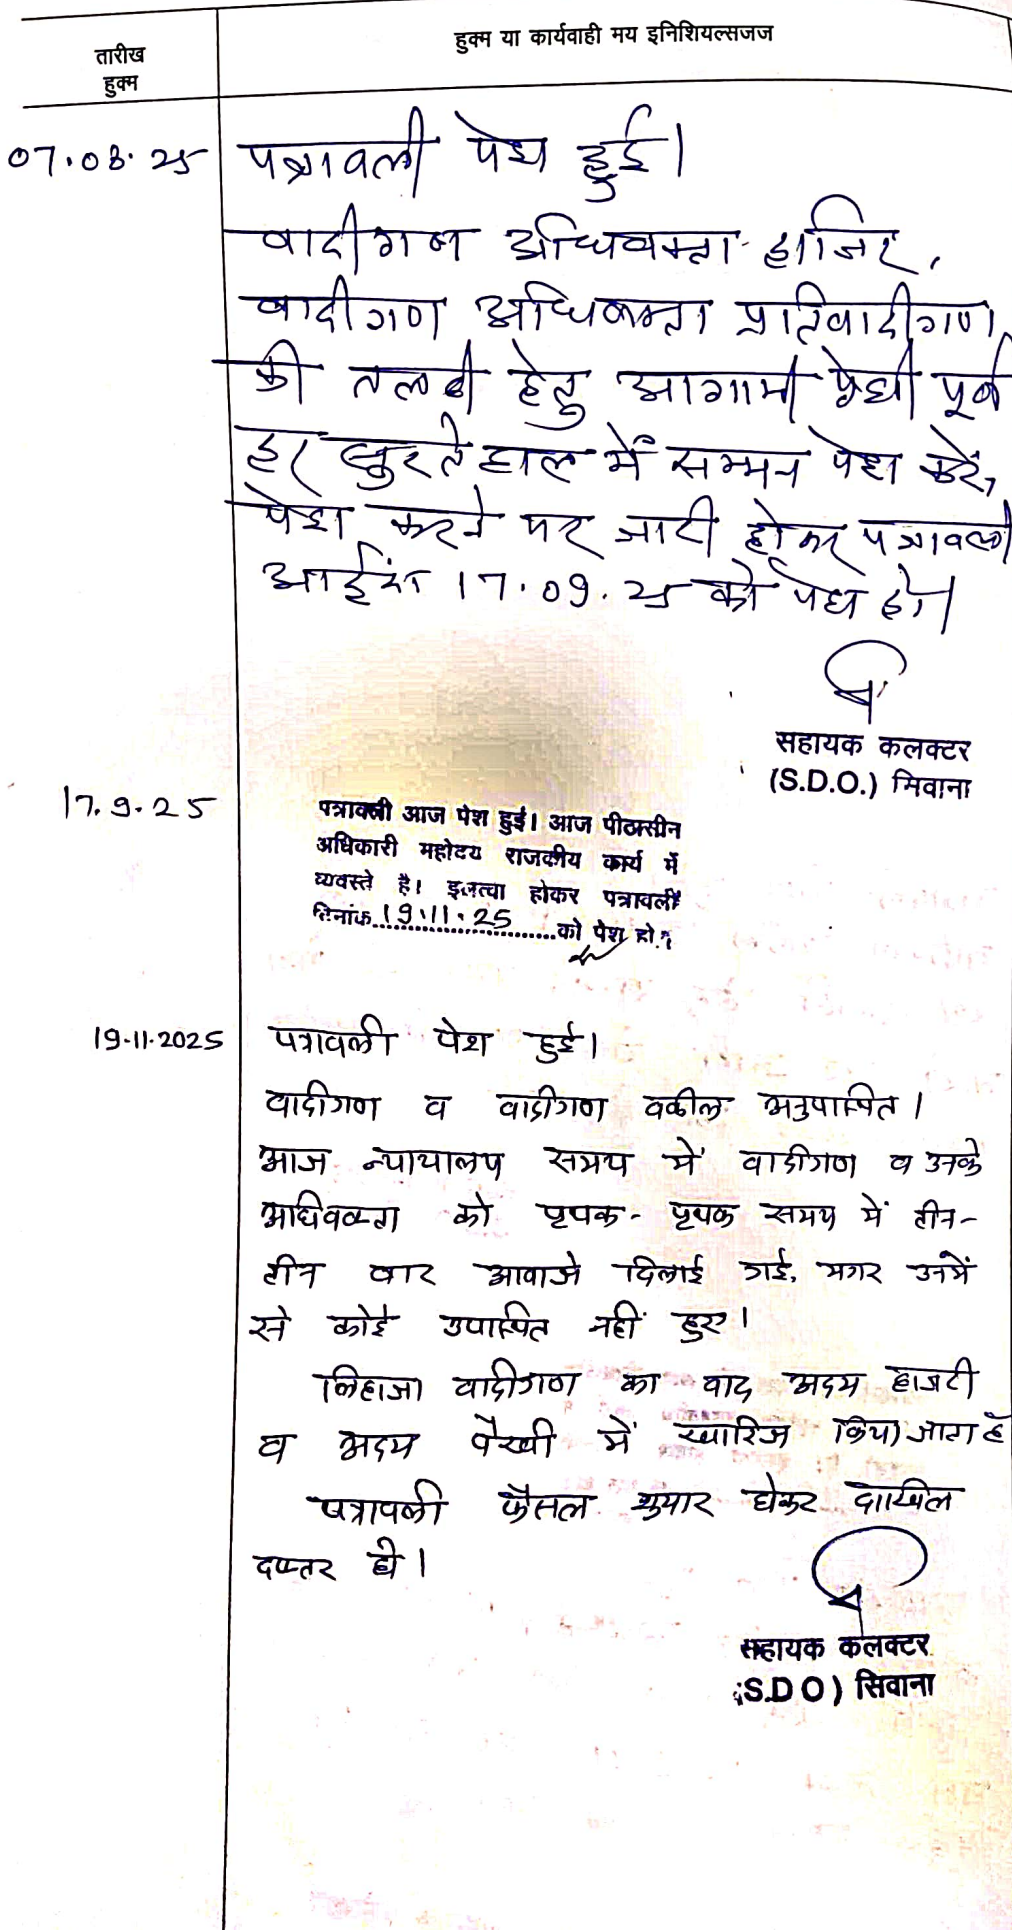 तारीख
हुक्म
हुक्म या कार्यवाही मय इनिशियल्सजज
07.03.25 पत्रावली पेश हुई।
वादीगण अधिवक्ता हाजिर,
वादीगण अधिवक्ता प्रतिवादीगण
की तलबी हेतु आगामी पेशी पूर्व
हर सुरते हाल में सम्मन पेश करें,
पेश करने पर जारी होकर पत्रावली
आईंदा 17.09.25 को पेश हो।
सहायक कलक्टर
(S.D.O.) सिवाना
17.9.25 पत्रावली आज पेश हुई। आज पीठासीन
अधिकारी महोदय राजकीय कार्य में
व्यवस्त है। इलत्वा होकर पत्रावली
दिनांक 19.11.25 को पेश हो।
19.11.2025 पत्रावली पेश हुई।
वादीगण व वादीगण वकील अनुपस्थित।
आज न्यायालय समय में वादीगण व उनके
अधिवक्ता को पृथक-पृथक समय में तीन-
तीन बार आवाजे दिलाई गई, मगर उनमें
से कोई उपस्थित नहीं हुए।
लिहाजा वादीगण का वाद अदम हाजरी
व अदम पैरवी में खारिज किया जाता है
पत्रावली फैसल शुमार होकर दाखिल
दफ्तर हो।
सहायक कलक्टर
(S.D O) सिवाना